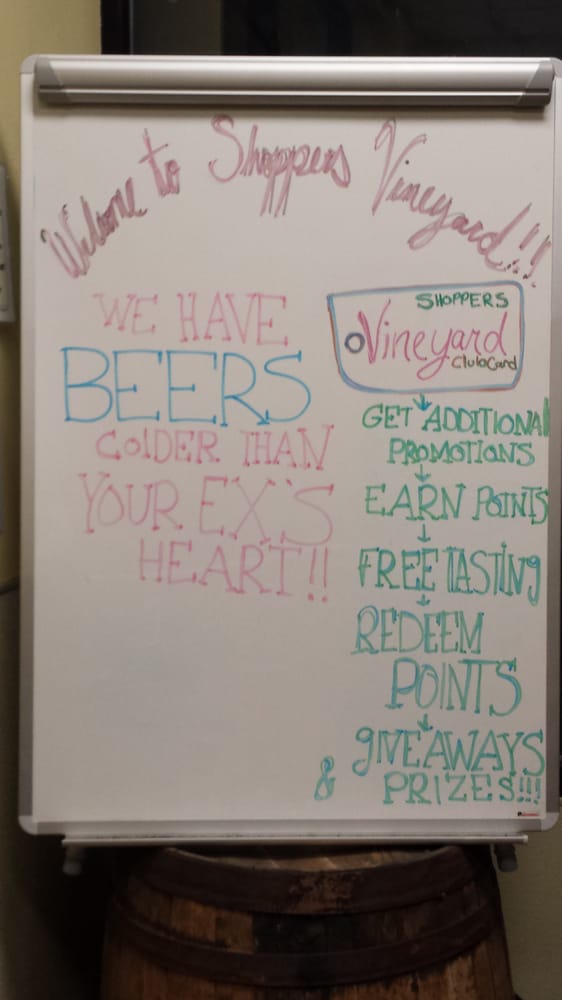 Welcome to Shoppers Vineyard!!
WE HAVE
BEERS
COlDER THAN
YOUR EX'S
HEART!!
SHOPPERS
Vineyard
Club Card
GET ADDITIONAl
PROMOTIONS
EARN POINTS
FREE TASTING
REDEEM
POINTS
GIVEAWAYS
& PRIZES!!!